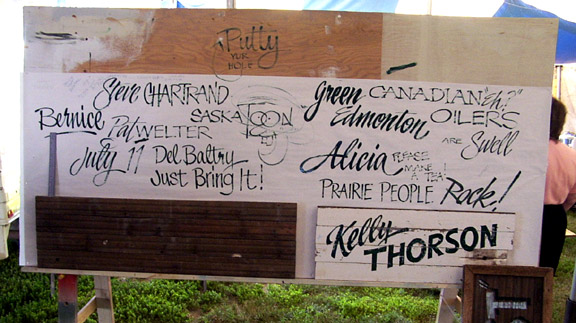 Putty
YUR
HOLE
Steve CHARTRAND
SASKATOON
Bernice Pat WELTER
July 11 Del Baltry
Just Bring It!
Green CANADIAN "Eh?"
Edmonton OILERS
ARE Swell
Alicia PLEASE
MAKE
A TEA!
PRAIRIE PEOPLE Rock!
Kelly
THORSON